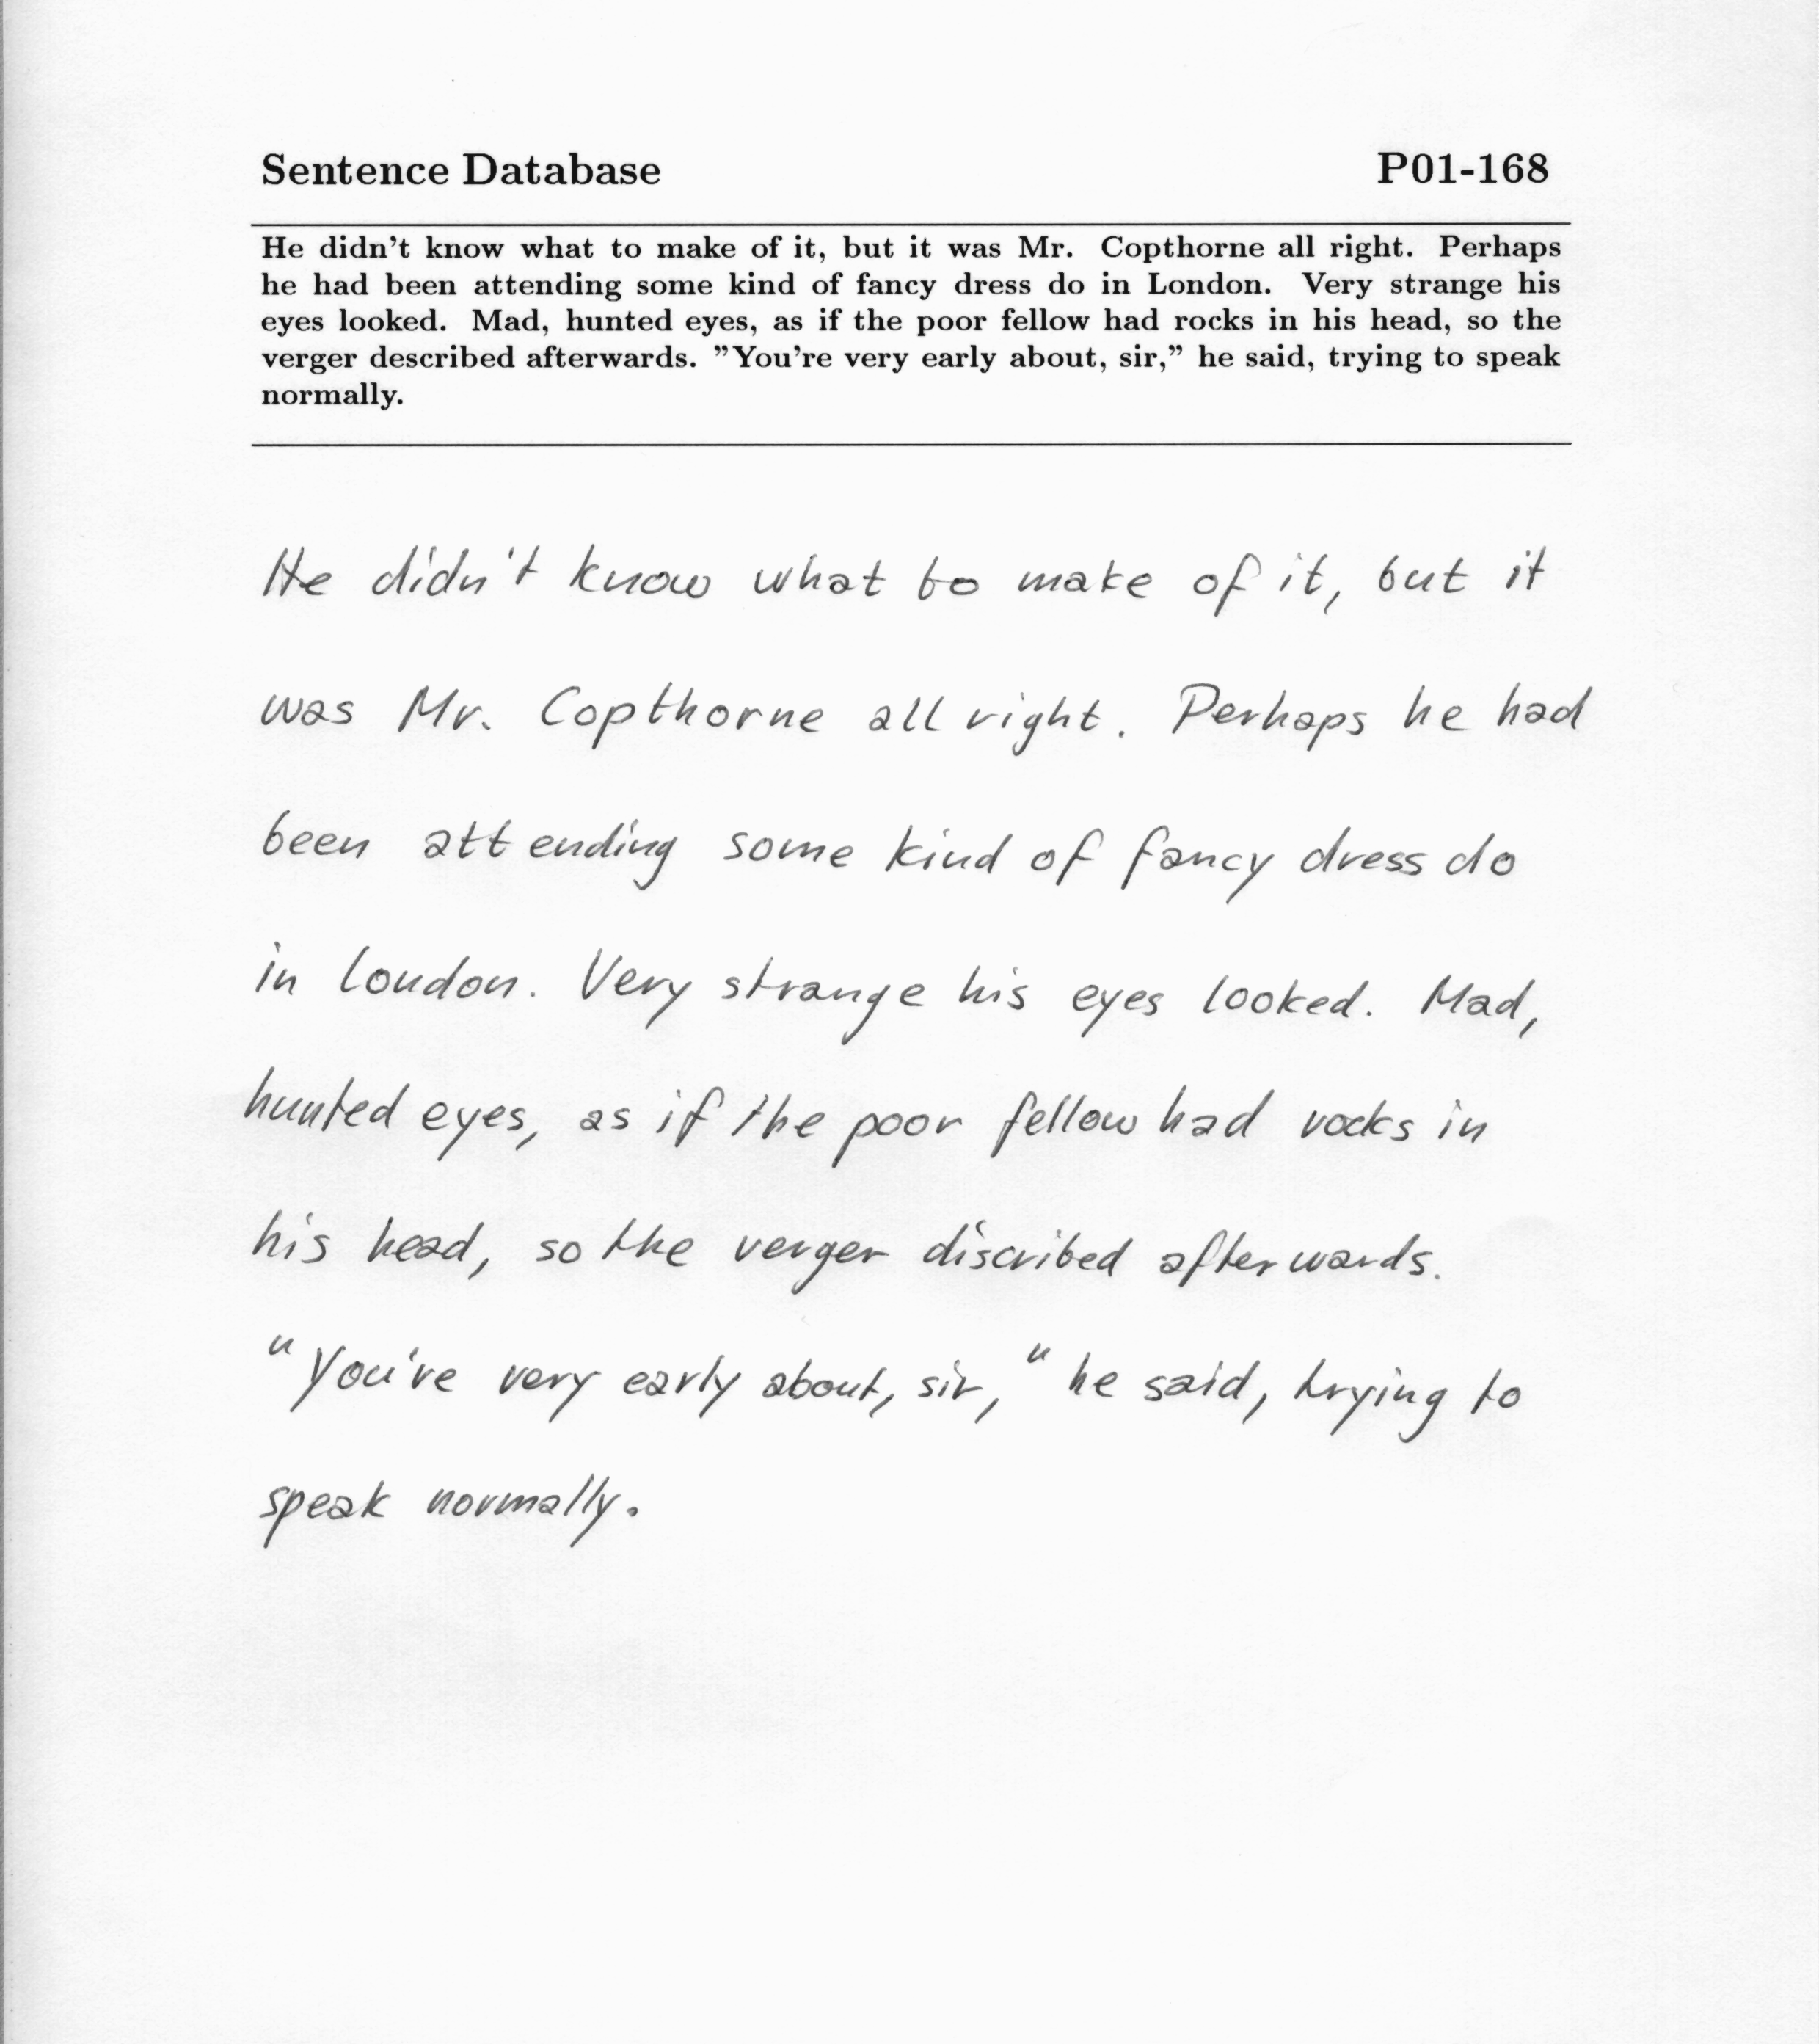 Sentence Database P01-168
He didn't know what to make of it, but it was Mr. Copthorne all right. Perhaps
he had been attending some kind of fancy dress do in London. Very strange his
eyes looked. Mad, hunted eyes, as if the poor fellow had rocks in his head, so the
verger described afterwards. ”You're very early about, sir,” he said, trying to speak
normally.
He didn't know what to make of it, but it
was Mr. Copthorne all right. Perhaps he had
been attending some kind of fancy dress do
in London. Very strange his eyes looked. Mad,
hunted eyes, as if the poor fellow had rocks in
his head, so the verger discribed afterwards.
"You're very early about, sir," he said, trying to
speak normally.